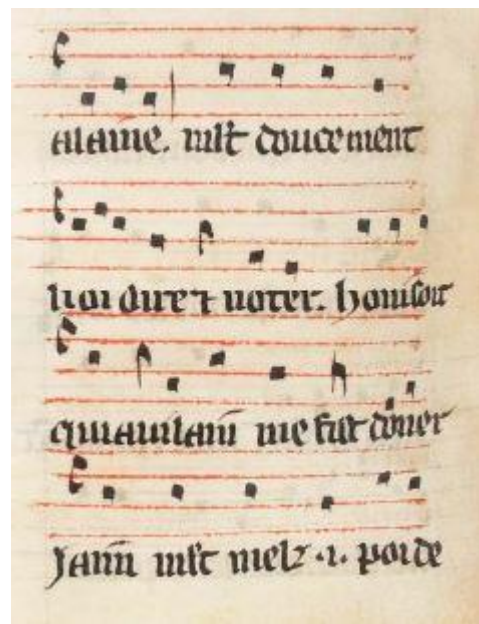 alaine. mlt doucement
li oi dire ⁊ noter. honi soit
qui auilain me fist doner
Jaim mlt melz .i. poi de